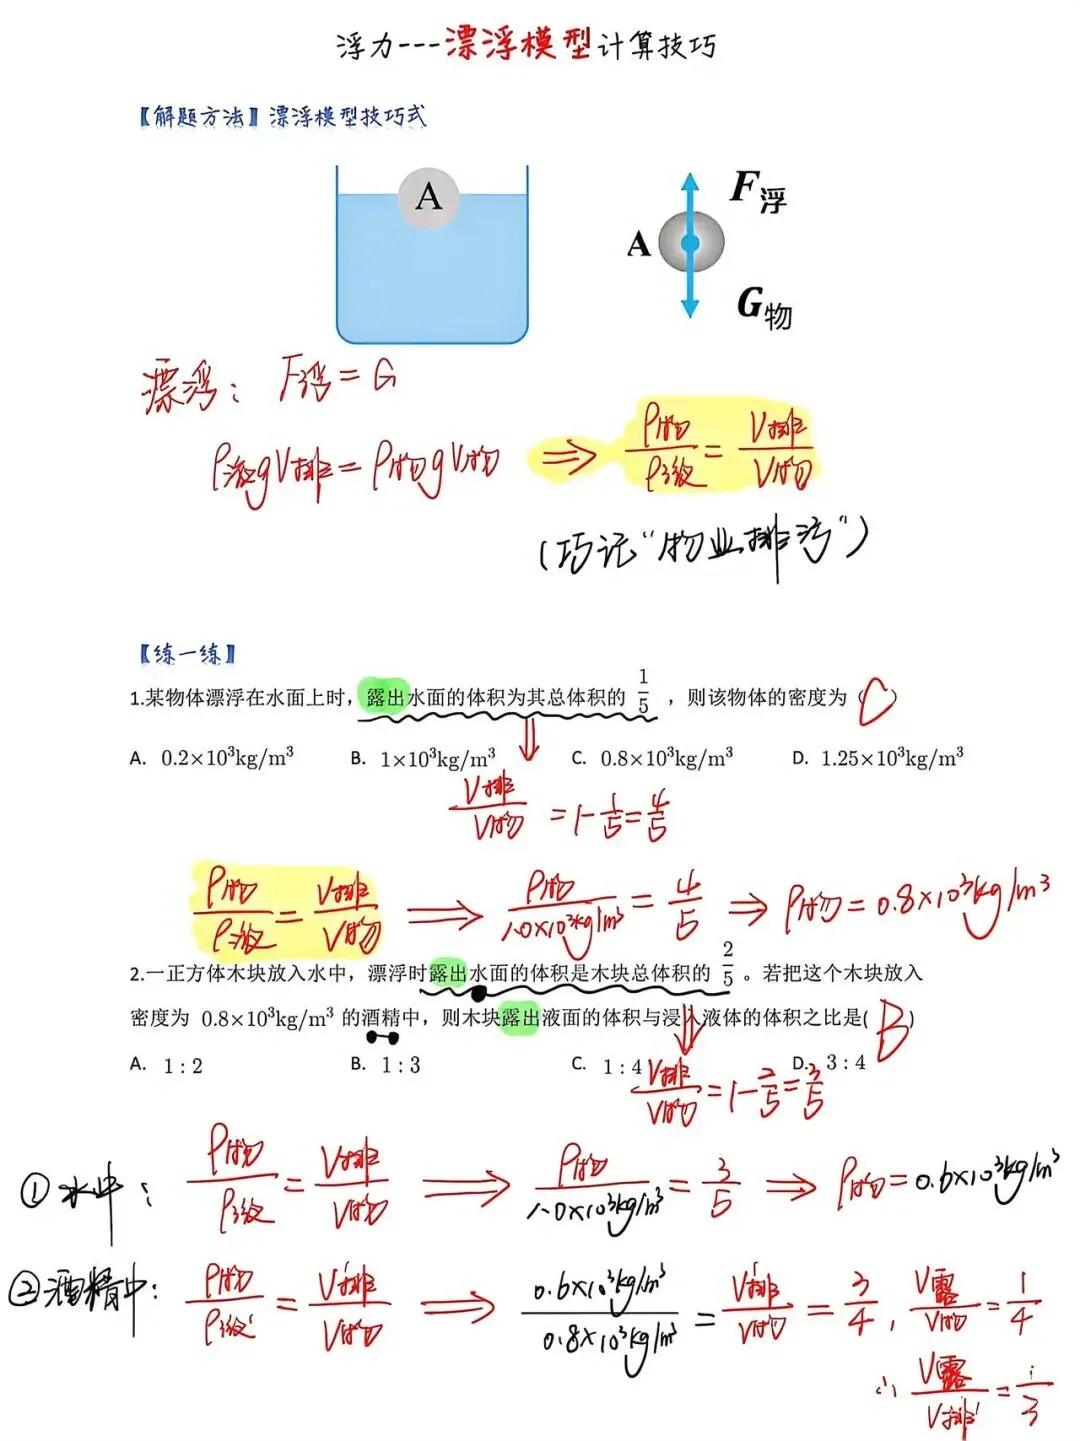 浮力---漂浮模型计算技巧
【解题方法】漂浮模型技巧式
A
F浮
A
G物
漂浮：F浮=G
ρ液gV排=ρ物gV物 ⇒ ρ物/ρ液=V排/V物
（巧记“物业排污”）
【练一练】
1.某物体漂浮在水面上时，露出水面的体积为其总体积的 1/5 ，则该物体的密度为（C）
A. 0.2×10³kg/m³ B. 1×10³kg/m³ C. 0.8×10³kg/m³ D. 1.25×10³kg/m³
V排/V物=1-1/5=4/5
ρ物/ρ液=V排/V物 ⇒ ρ物/1.0×10³kg/m³=4/5 ⇒ ρ物=0.8×10³kg/m³
2.一正方体木块放入水中，漂浮时露出水面的体积是木块总体积的 2/5 。若把这个木块放入
密度为 0.8×10³kg/m³ 的酒精中，则木块露出液面的体积与浸入液体的体积之比是(B)
A. 1:2 B. 1:3 C. 1:4 D. 3:4
V排/V物=1-2/5=3/5
①水中：ρ物/ρ液=V排/V物 ⇒ ρ物/1.0×10³kg/m³=3/5 ⇒ ρ物=0.6×10³kg/m³
②酒精中：ρ物/ρ液'=V'排/V物 ⇒ 0.6×10³kg/m³/0.8×10³kg/m³=V'排/V物=3/4，V露/V物=1/4
∴V露/V排'=1/3